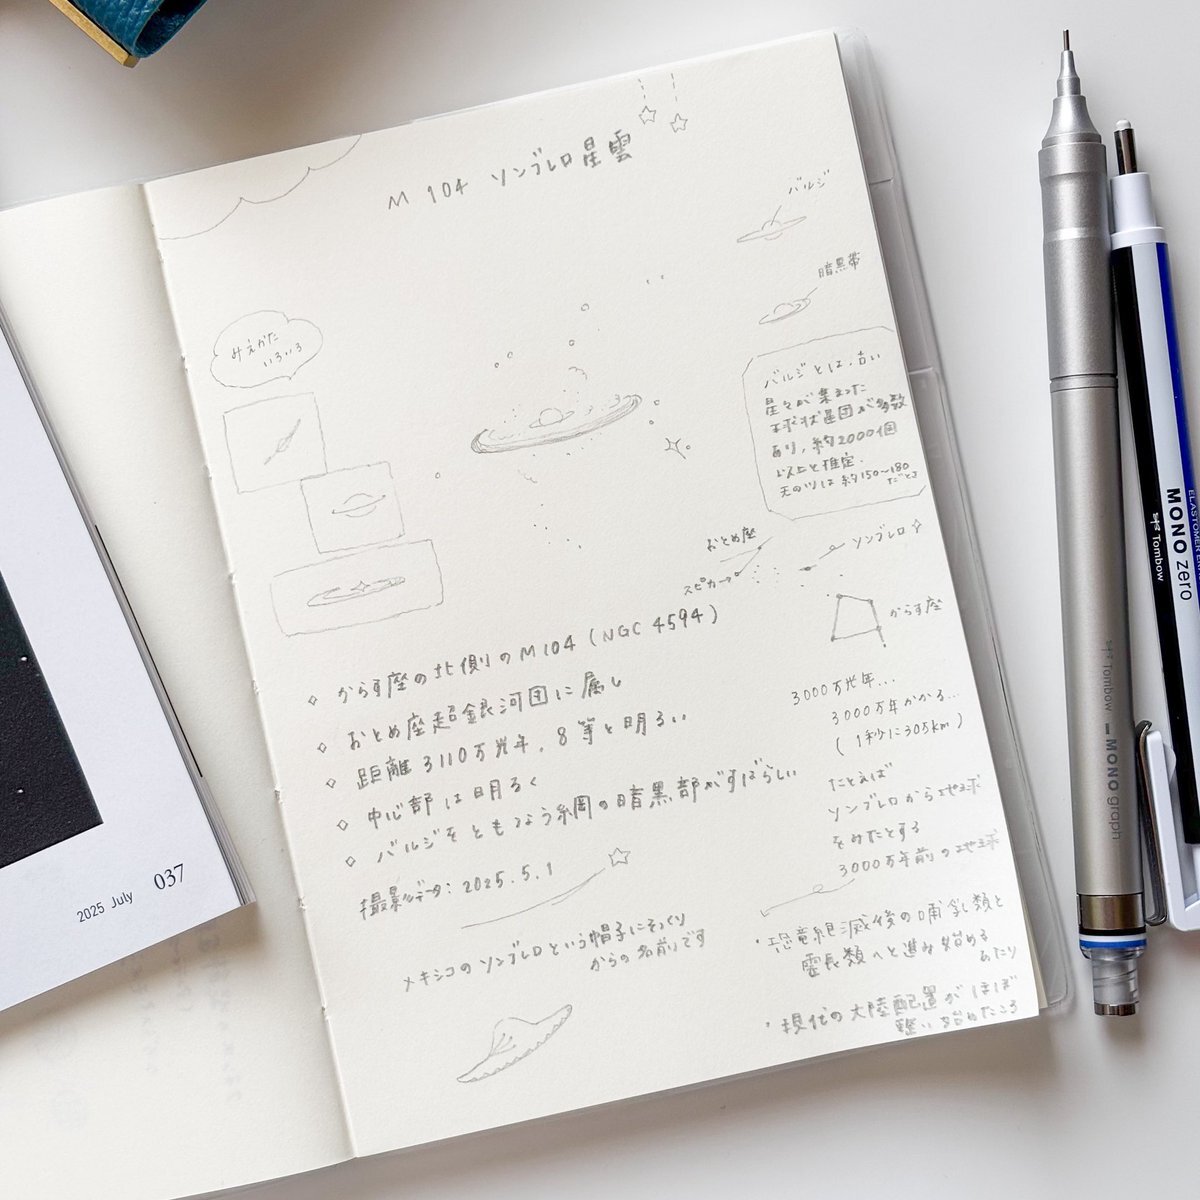 M 104 ソンブレロ星雲
バルジ
暗黒帯
みえかた
いろいろ
バルジとは、古い
星々が集まった
球状星団が多数
あり、約2000個
以上と推定.
天の川は約150〜180
だとさ
おとめ座
スピカ
ソンブレロ
からす座
◇ からす座の北側のM104 (NGC 4594)
◇ おとめ座超銀河団に属し
◇ 距離3110万光年、8等と明るい
◇ 中心部は明るく
◇ バルジをともなう綱の暗黒部がすばらしい
撮影データ: 2025.5.1
メキシコのソンブレロという帽子にそっくり
からの名前です
3000万光年...
3000万年かかる...
(1秒に305km)
たとえば
ソンブレロから地球
をみたとする
3000万年前の地球
・恐竜絶滅後の哺乳類と
霊長類へと進み始める
あたり
・現代の大陸配置がほぼ
整い始めたころ
2025 July 037
Tombow MONO graph
Tombow
MONO zero